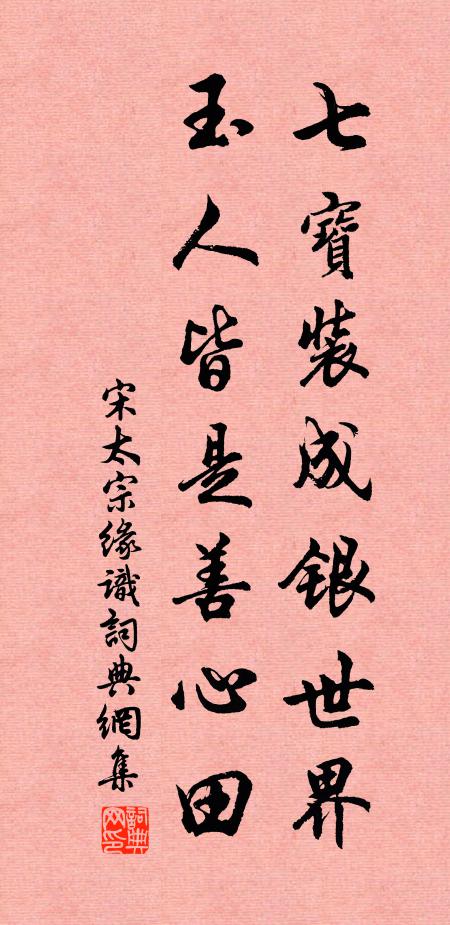 七寶裝成銀世界
玉人皆是善心田
宋太宗緣識詞典網集
詞典网印